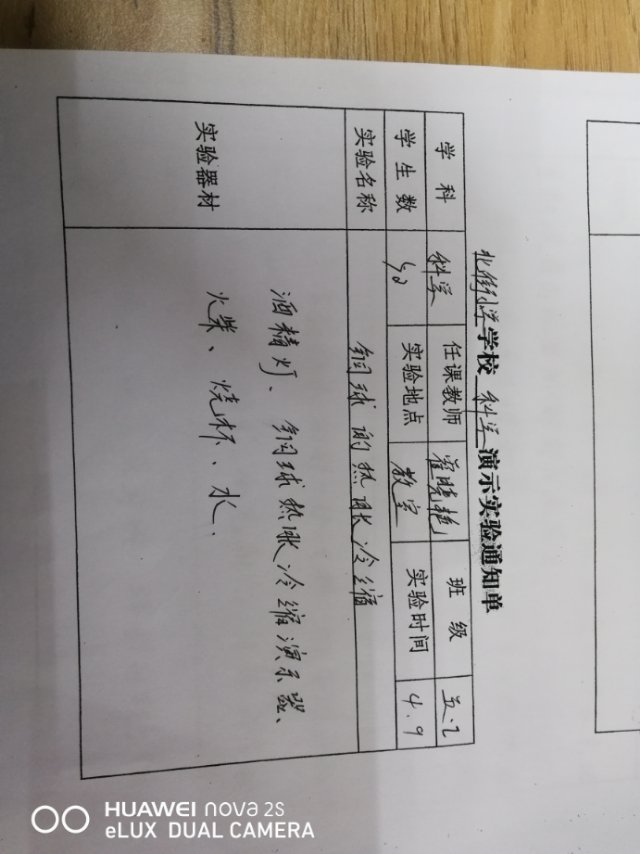 北街小学学校 科学 演示实验通知单
学科 科学 任课教师 翟晓艳 班级 五.2
学生数 50 实验地点 教室 实验时间 4.9
实验名称 铜球的热胀冷缩
实验器材 酒精灯、铜球热胀冷缩演示器、
火柴、烧杯、水.
HUAWEI nova 2S
eLUX DUAL CAMERA